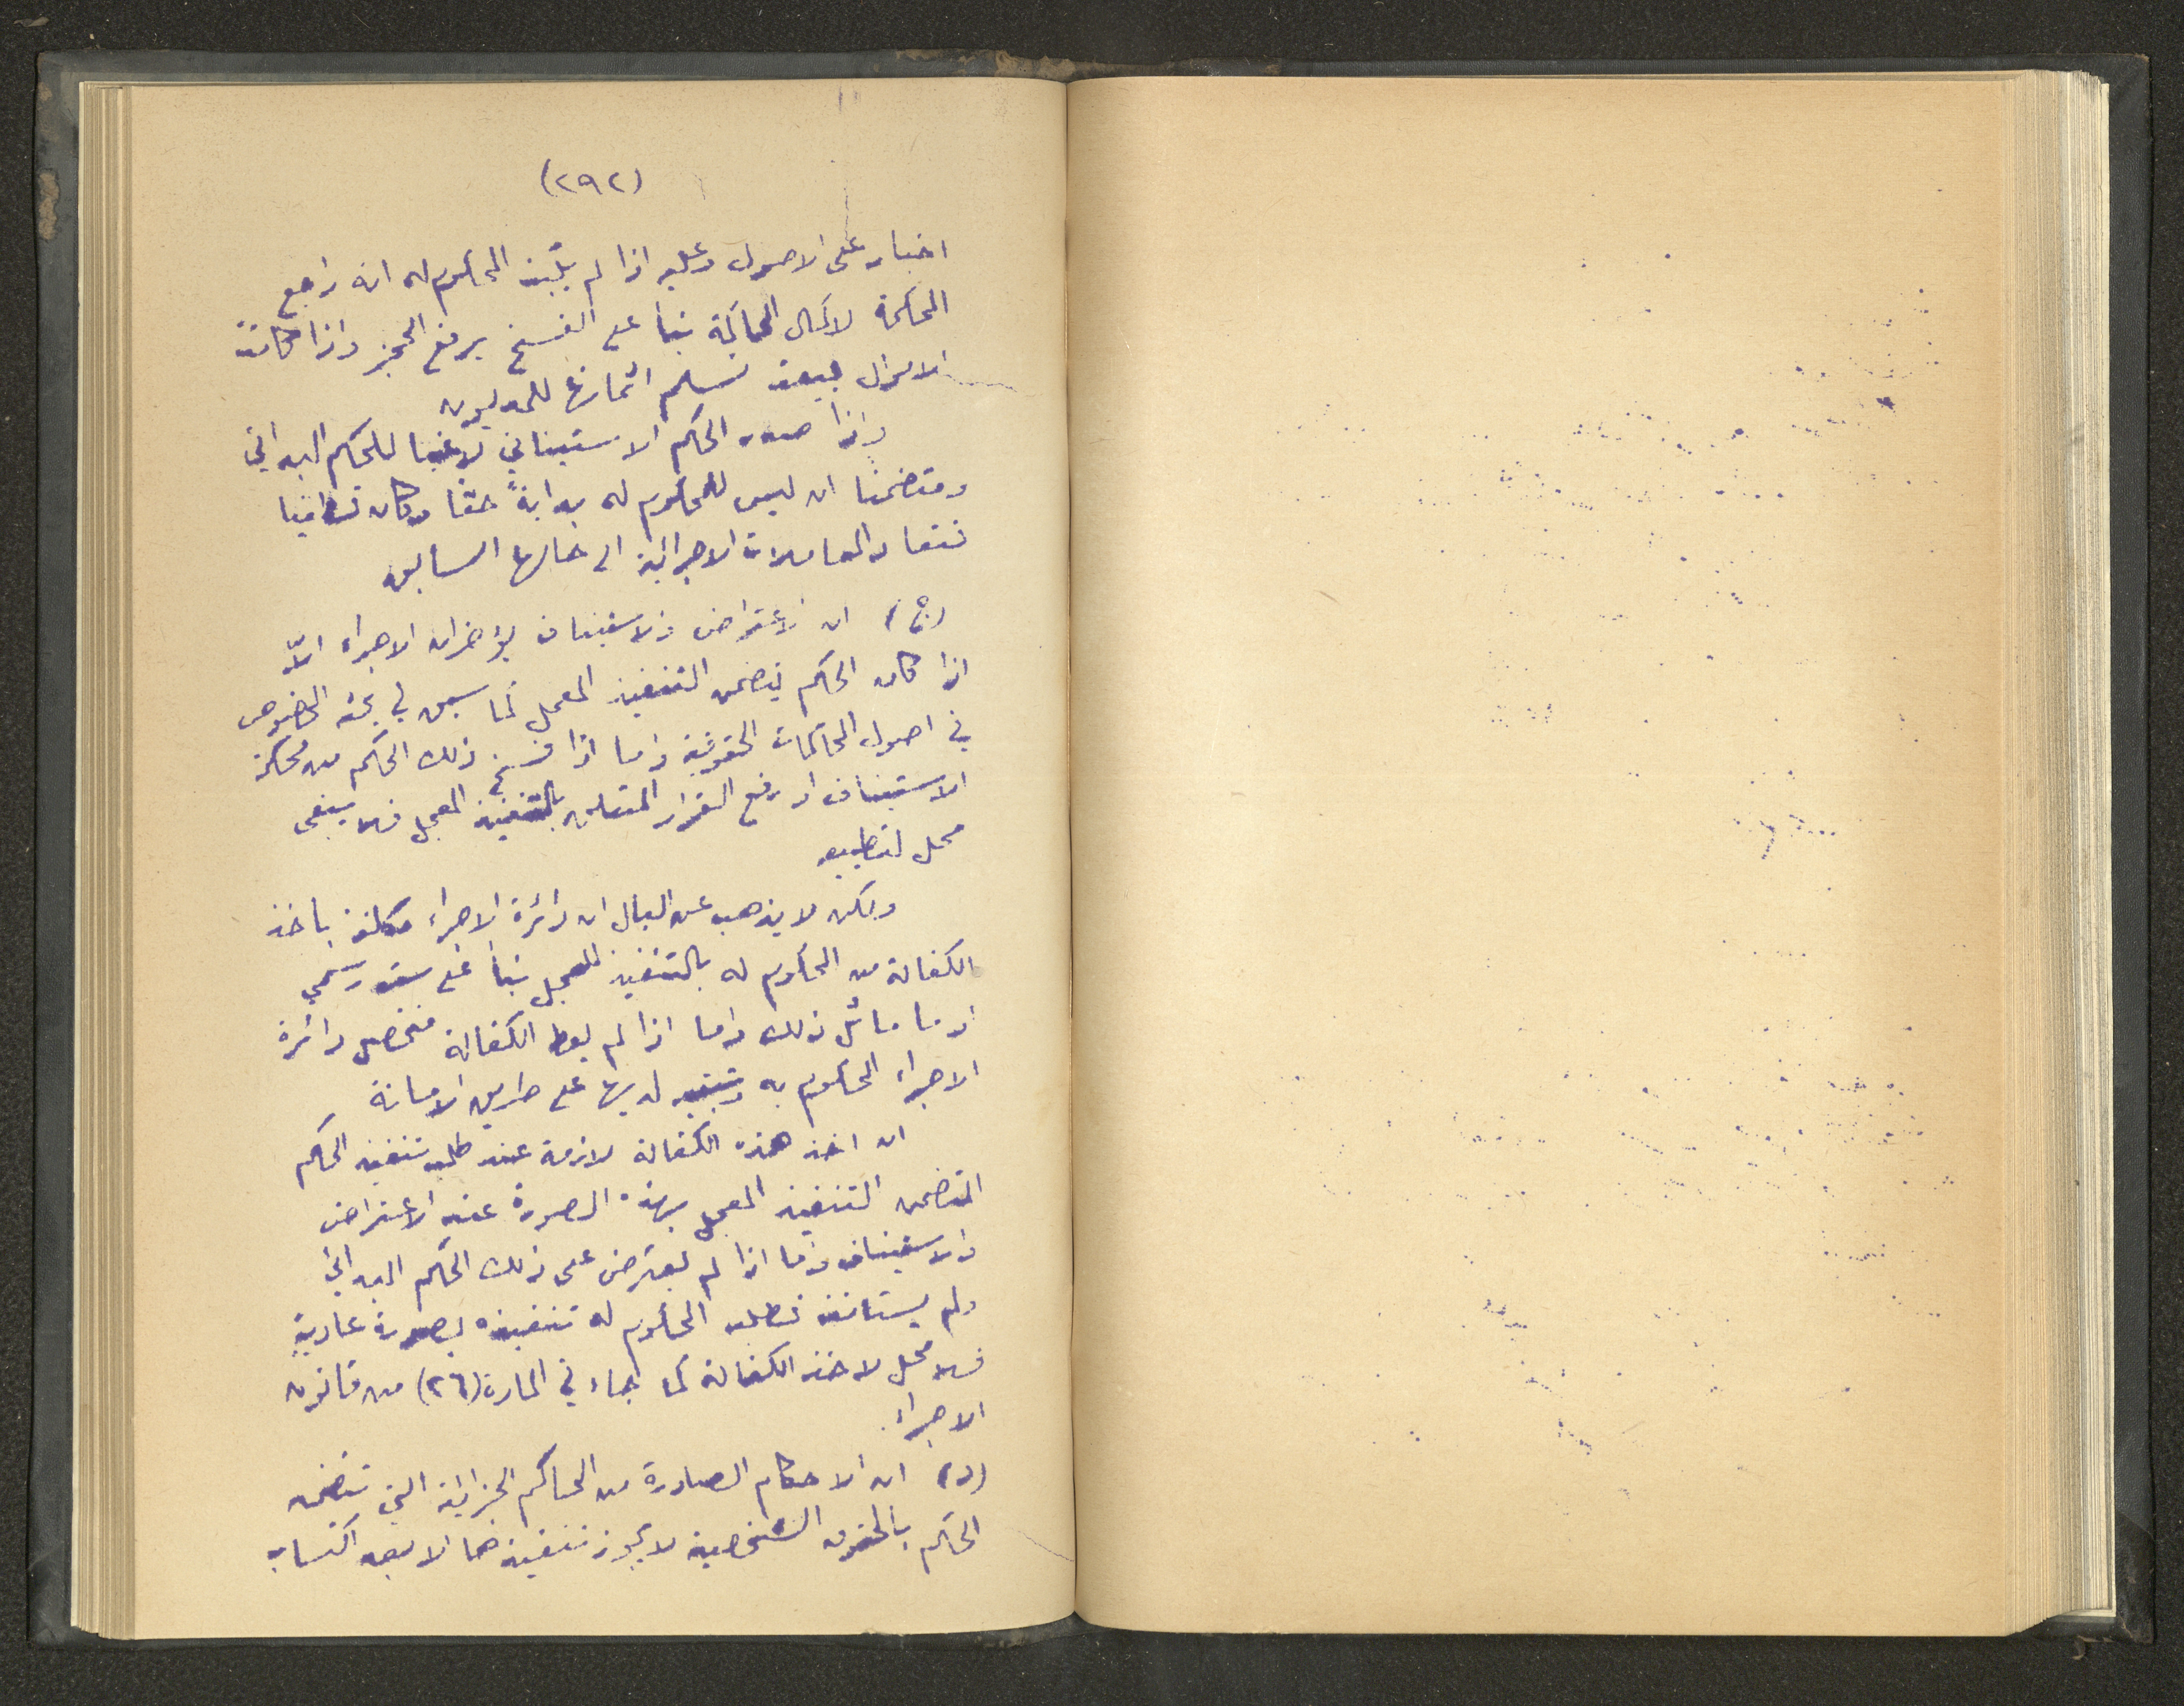 (٢٩٢)
اخبار على الاصول وعليه اذا لم يثبت المحكوم له انه راجع
المحكمة لاكمال المحاكمة بناً على الفسخ يرفع الحجز واذا كانت
الاموال بيعت تسلم اثمانها للمديون
واذا صدر الحكم الاستينافي لاغيا للحكم البدائي
ومتضمنا ان ليس للمحكوم له بدايةً حقا وكان قطعيا
فتعاد المعاملات الاجرائية الى حالها السابق
(ج) ان الاعتراض والاستيناف يؤخران الاجراء الّا
اذا كان الحكم يتضمن التنفيذ المعجل كما سبق في بحثه المخصوص
في اصول المحاكمات الحقوقية واما اذا فسخ ذلك الحكم من محكمة
الاستيناف او رفع القرار المتعلق بالتنفيذ المعجل فلا يبقى
محل لتطبيقه
ولكن لا يذهب عن البال ان دائرة الاجراء مكلفة باخذ
الكفالة من المحكوم له بالتنفيذ المعجل بناً على سند رسمي
او ما ماثل ذلك واما اذا لم يعط الكفالة فتحصل دائرة
الاجراء المحكوم به وتبقيه لديها على طريق الامانة
ان اخذ هذه الكفالة لازمة عند طلب تنفيذ الحكم
المتضمن التنفيذ المعجل بهذه الصورة عند الاعتراض
والاستيناف واما اذا لم يعترض على ذلك الحكم البدائي
ولم يستانف فطلب المحكوم له تنفيذه بصورة عادية
فلا محل لاخذ الكفالة كما جاء في المادة (٢٦) من قانون
الاجراء.
(د) ان الاحكام الصادرة من المحاكم الجزائية التي تتضمن
الحكم بالحقوق الشخصية لا يجوز تنفيذها الا بعد اكتساب